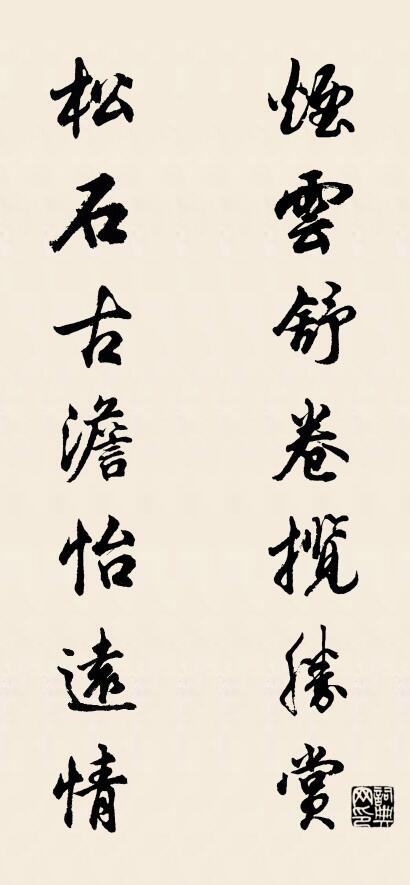 煙雲舒卷攬勝賞
松石古澹怡遠情
詞典网印